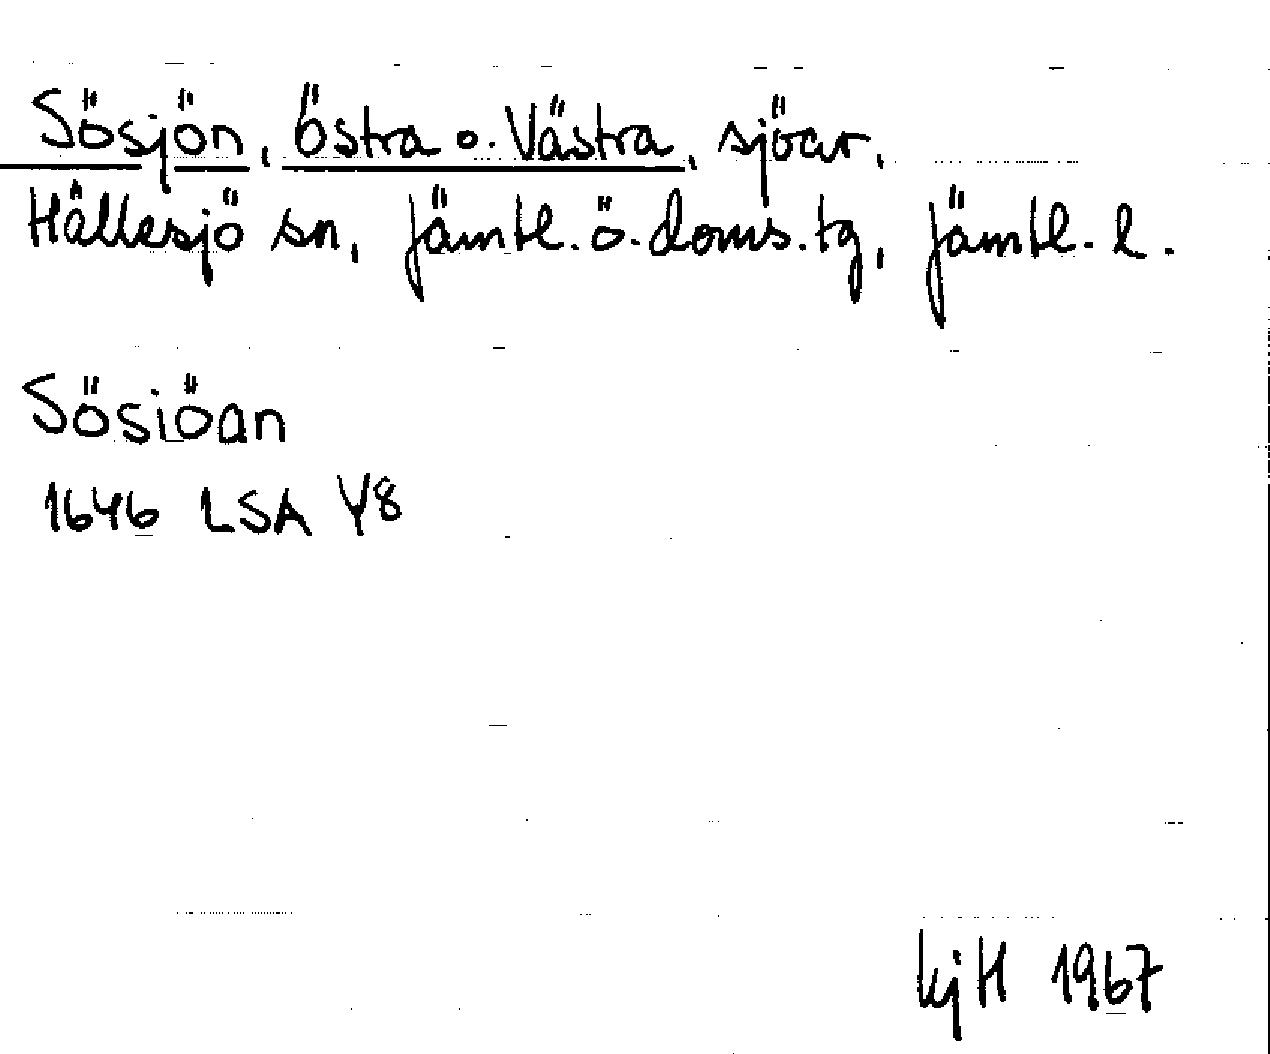 Sösjön, Östra o. Västra, sjöar,
Hällesjö sn, Jämtl. ö. doms. tg, Jämtl. l.
Sösiöan
1646 LSA Y8
kjH 1967